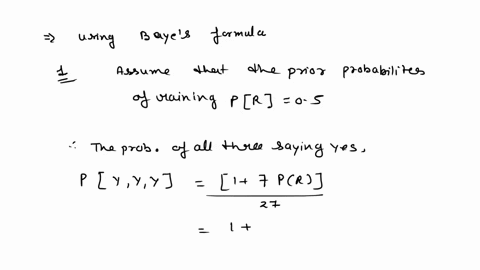 ⇒ using Baye's formula
1 Assume that the prior probabilites
of raining P[R] = 0.5
∴ The prob. of all three saying yes,
P [ Y, Y, Y ] = [1 + 7 P(R)]
27
= 1 +